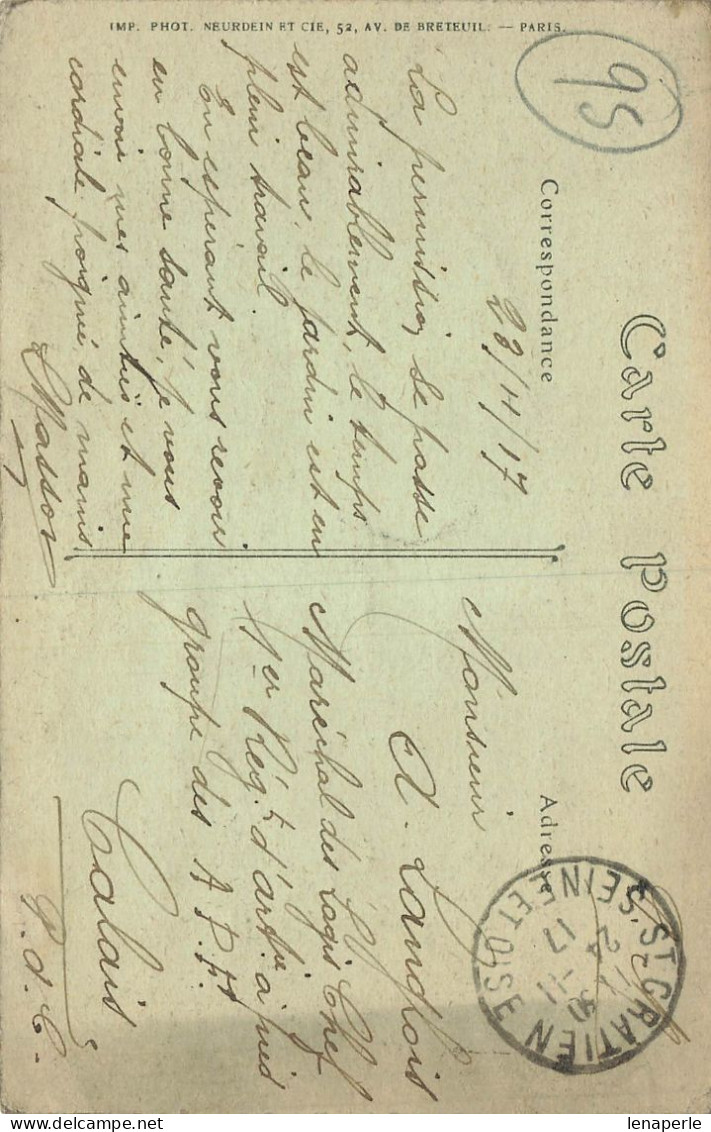 Carte Postale
Correspondance
Adresse
95
23/11/17
La permission se passe
admirablement, le temps
est beau, le jardin est en
plein travail.
En espérant vous revoir
en bonne santé, je vous
envoie mes amitiés et une
cordiale poignée de mains
LMasson
Monsieur
A. Langlois
Maréchal des Logis Chef
1er Rég.t d'art.ie à pied
groupe des A.P.A
Calais
P.d.C.
ST GRATIEN
SEINE ET OISE
24 -11
17
IMP. PHOT. NEURDEIN ET CIE, 52, AV. DE BRETEUIL. — PARIS.
lenaperle